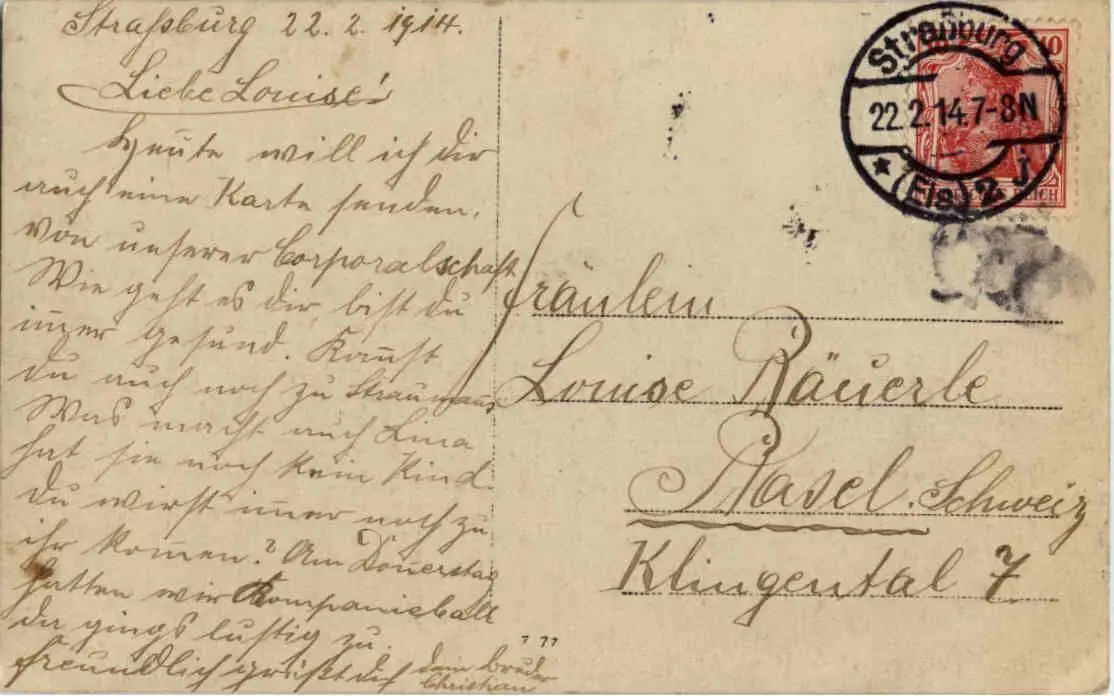 Straßburg 22. 2. 1914.
Liebe Louise!
Heute will ich dir
auch eine Karte senden,
von unserer Corporalschaft
Wie geht es dir, bist du
im̄er gesund. Kom̄st
du auch noch zu Straumans
Was macht auch Lina
hat sie noch kein Kind.
du wirst im̄er noch zu
ihr kom̄en? Am Don̄erstag
hatten wir Kompanieball
da gings lustig zu.
freundlich grüßt dich dein Bruder
Christian
Straßburg
22.2.14.7-8N
* (Els) 2 j
10
REICH
Fräulein
Louise Bäuerle
Basel. Schweiz
Klingental 7
7 77